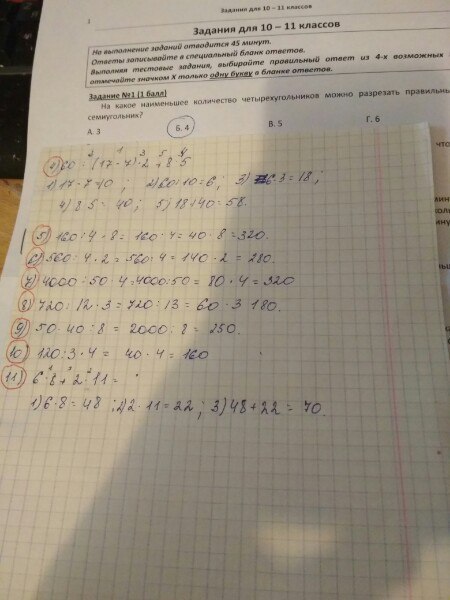 Задания для 10 – 11 классов
1
Задания для 10 – 11 классов
На выполнение заданий отводится 45 минут.
Ответы записывайте в специальный бланк ответов.
Выполняя тестовые задания, выбирайте правильный ответ из 4-х возможных
отмечайте значком X только одну букву в бланке ответов.
Задание №1 (1 балл)
На какое наименьшее количество четырехугольников можно разрезать правильны
семиугольник?
А. 3 Б. 4 В. 5 Г. 6
4) 60 : (17 - 7) · 3 + 8 · 5
1) 17 - 7 = 10 ; 2) 60 : 10 = 6 ; 3) 6 · 3 = 18 ;
4) 8 · 5 = 40 ; 5) 18 + 40 = 58.
5) 160 : 4 · 8 = 160 : 4 = 40 · 8 = 320.
6) 560 : 4 · 2 = 560 : 4 = 140 · 2 = 280.
7) 4000 : 50 · 4 = 4000 : 50 = 80 · 4 = 320
8) 720 : 12 · 3 = 720 : 13 = 60 · 3 180.
9) 50 · 40 : 8 = 2000 : 8 = 250.
10) 120 : 3 · 4 = 40 · 4 = 160
11) 6 · 8 + 2 · 11 =
1) 6 · 8 = 48 ; 2) 2 · 11 = 22 ; 3) 48 + 22 = 70.